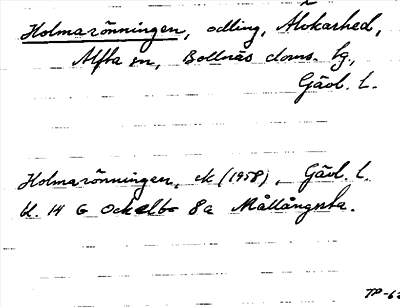 Holmarönningen, odling, Älvkarhed,
Alfta sn, Bollnäs doms. tg.,
Gävl. l.
Holmarönningen, ek (1958), Gävl. l.
bl. 14 G Ockelbo 8a Mållångsta.
TP-62